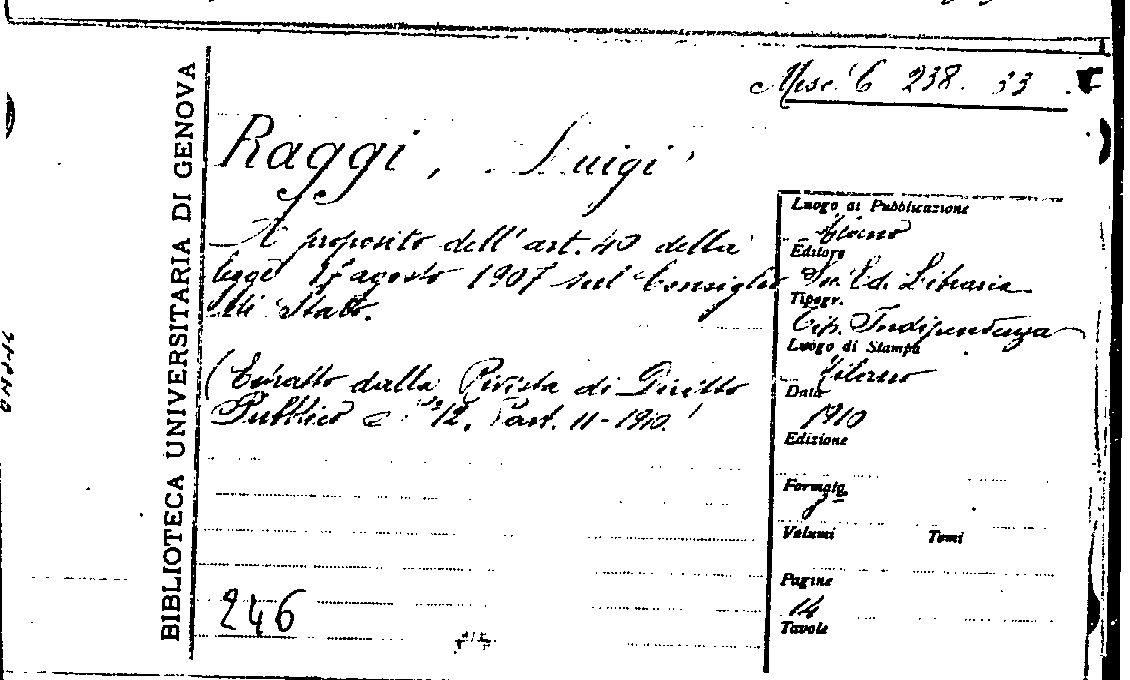 BIBLIOTECA UNIVERSITARIA DI GENOVA
Misc. C 238. 33
Raggi, Luigi
A proposito dell'art. 40 della
legge 17 agosto 1907 sul Consiglio
di Stato.
(Estratto dalla Rivista di Diritto
Pubblico 12, Part. II-1910.
246
Luogo di Pubblicazione
Milano
Editore
Soc. Ed. Libraria
Tipogr.
Tip. Indipendenza
Luogo di Stampa
Milano
Data
1910
Edizione
Formato
Volumi Tomi
Pagine
14
Tavole